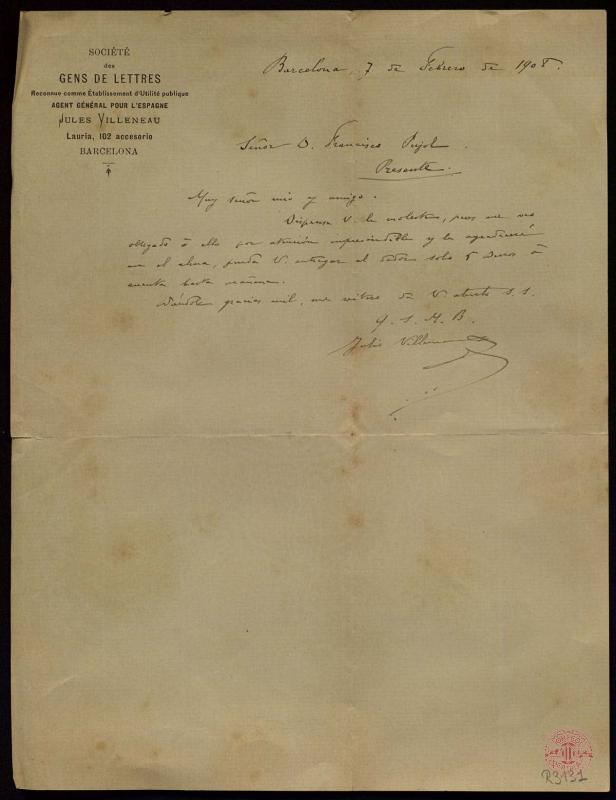 SOCIÉTÉ
des
GENS DE LETTRES
Reconnue comme Établissement d'Utilité publique
AGENT GÉNÉRAL POUR L'ESPAGNE
JULES VILLENEAU
Lauria, 102 accesorio
BARCELONA
Barcelona, 7 de Febrero de 1908.
Señor D. Francisco Pujol.
Presente.
Muy señor mio y amigo.
Dispense V. la molestia, pues me veo
obligado á ello por atención imprescindible y le agradeceré
en el alma, pueda V. entregar al dador solo 5 duros á
cuenta hasta mañana.
Dándole gracias mil, me reitero de V. atento S. S.
q. s. M. B.
Julio Villeneau
R3131